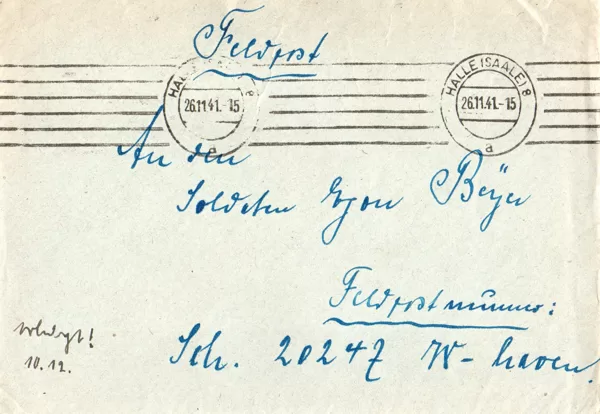 Feldpost
HALLE (SAALE) 8
26.11.41.-15
a
HALLE (SAALE) 8
26.11.41.-15
a
An den
Soldaten Egon Beÿer
Feldpostnummer:
erledigt!
10.12.
Sch. 20247 W-haven.